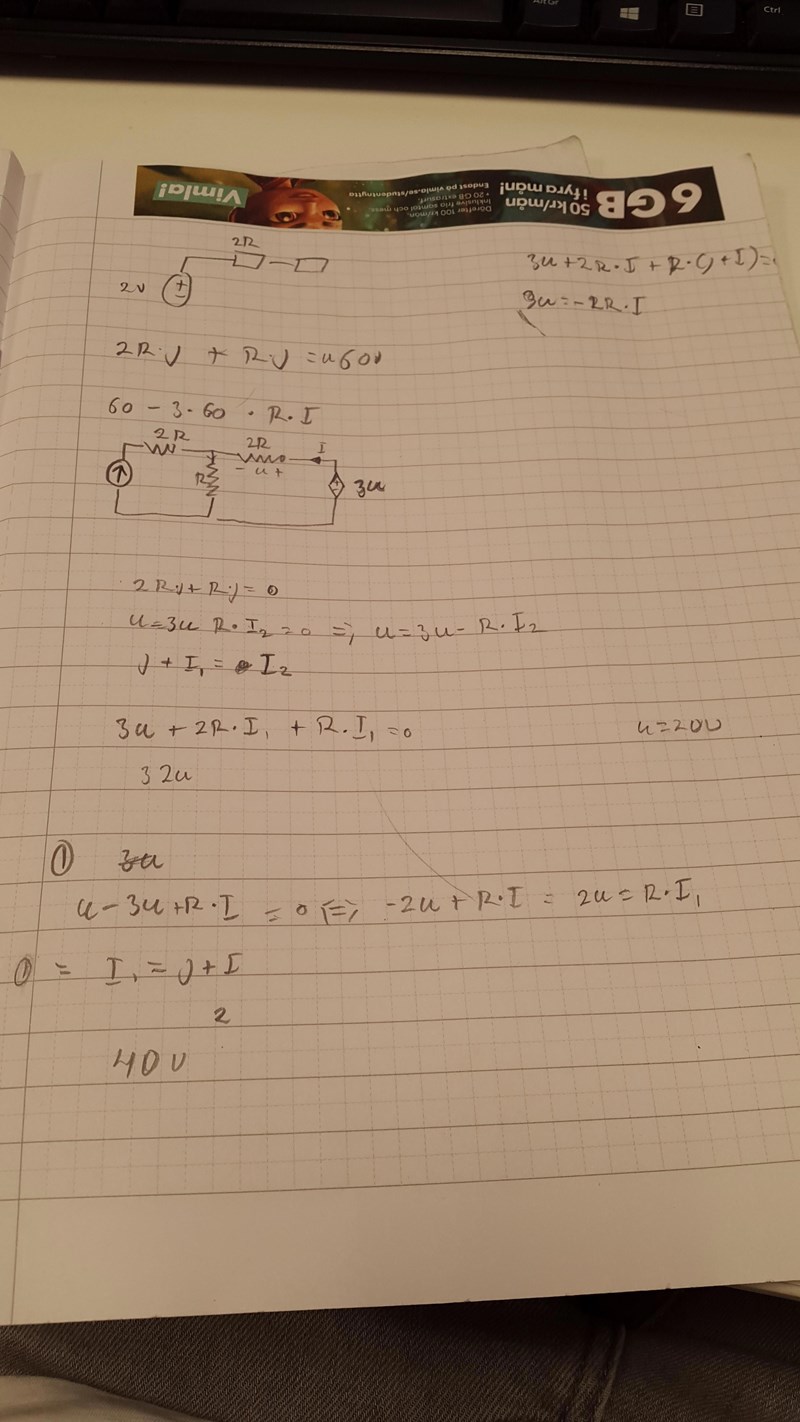 Alt Gr
Ctrl
6 GB
i fyra mån!
50 kr/mån
Därefter 100 kr/mån.
Inklusive fria samtal och mess
• 20 GB extrasurf.
Endast på vimla.se/studentnytta
Vimla!
2R
2V
+
-
3u + 2R·I + R·(J + I) =
3u = -2R·I
2R·J + R·J = u 60V
60 - 3·60 · R·I
2R
2R
I
R
- u +
3u
2R·J + R·J = 0
u = 3u R·I₂ = 0 => u = 3u - R·I₂
J + I₁ = I₂
3u + 2R·I₁ + R·I₁ = 0
u = 20V
3 2u
① 3u
u - 3u + R·I = 0 <=> -2u + R·I = 2u = R·I₁
① = I₁ = J + I
2
40V